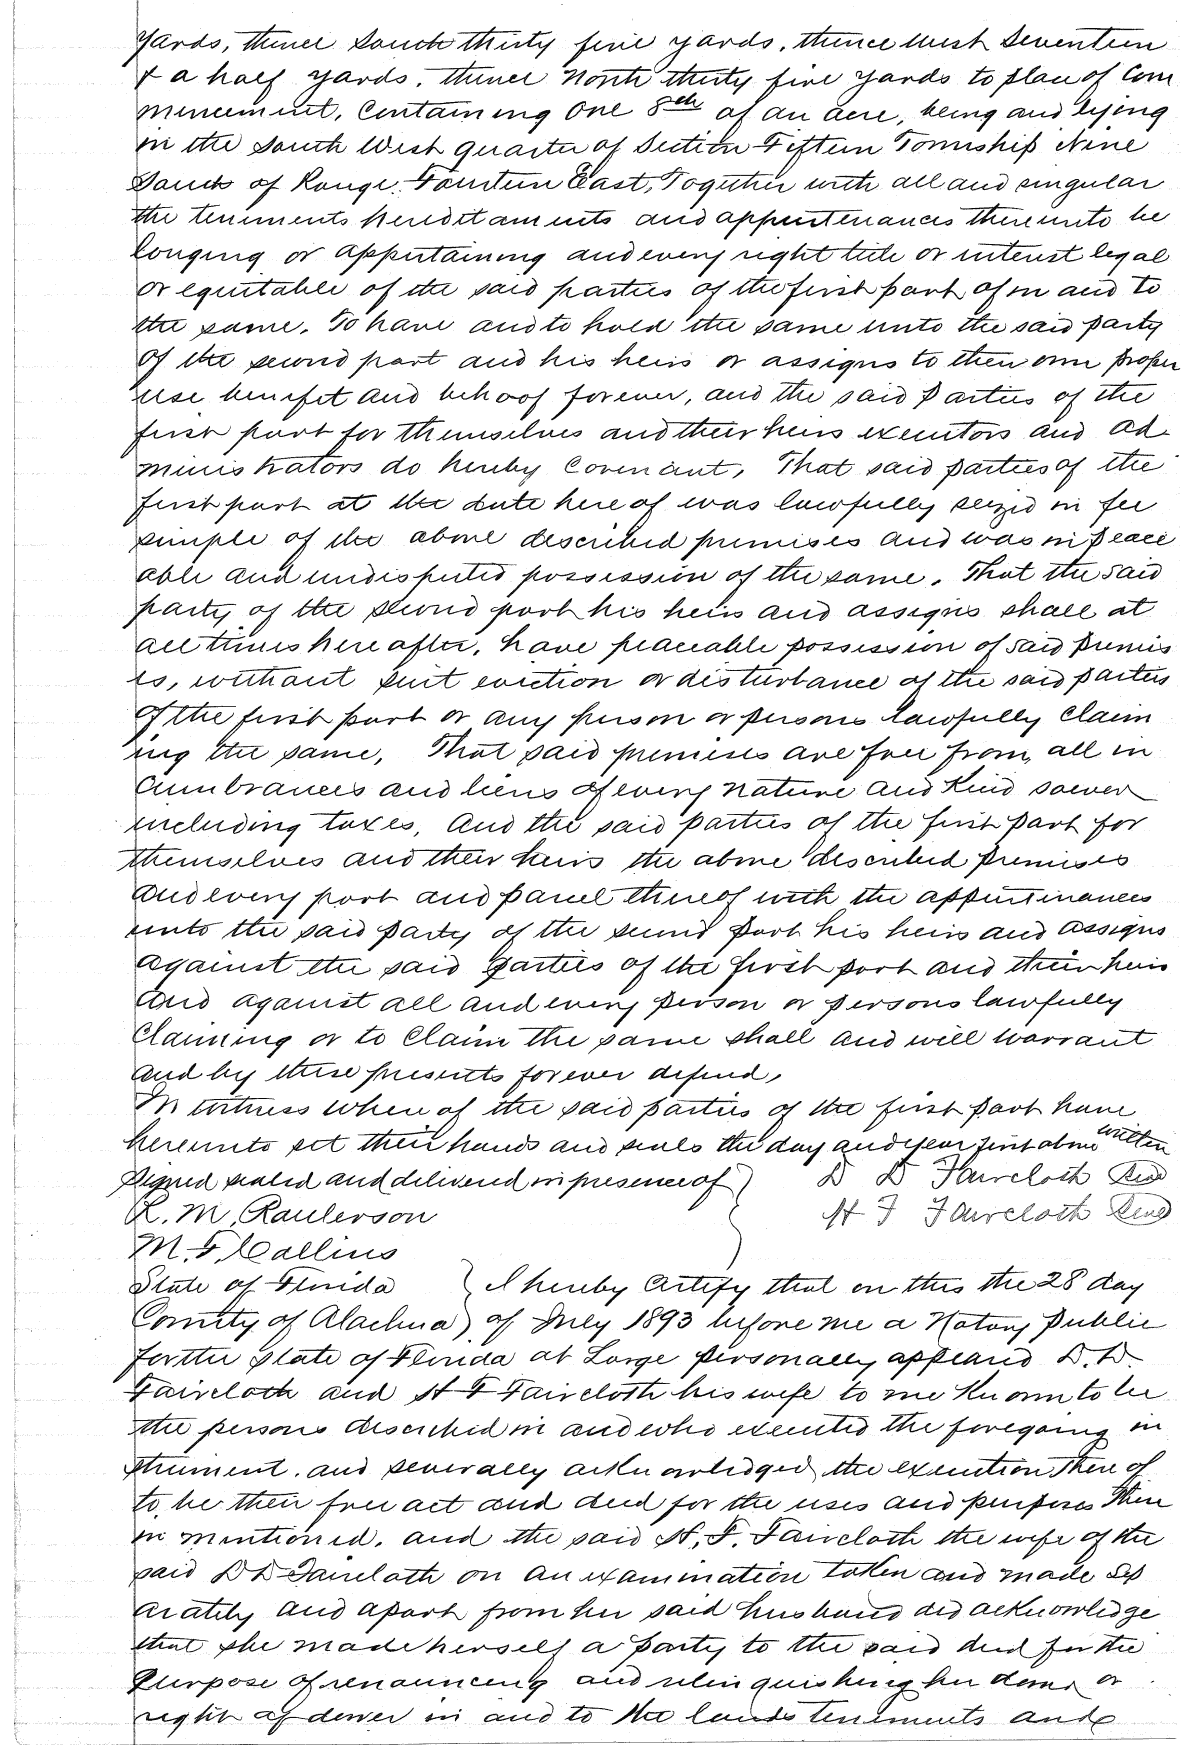 Yards, thence South thirty five yards, thence West Seventeen
& a half yards, thence North thirty five yards to place of Com
mencement, Containing One 8th of an acre, being and lying
in the South West quarter of Section Fifteen Township Nine
South of Range Fourteen East, Together with all and singular
the tenements hereditaments and appurtenances thereunto be
longing or appertaining and every right title or interest legal
or equitable of the said parties of the first part of in and to
the same. To have and to hold the same unto the said party
of the second part and his heirs or assigns to their own proper
use benefit and behoof forever, and the said Parties of the
first part for themselves and their heirs executors and ad
ministrators do hereby Covenant, That said parties of the
first part at the date here of was lawfully seized in fee
simple of the above described premises and was in peace
able and undisputed possession of the same. That the said
party of the second part his heirs and assigns shall at
all times here after, have peaceable possession of said premis
es, without suit eviction or disturbance of the said parties
of the first part or any person or persons lawfully Claim
ing the same, That said premises are free from all in
Cumbrances and liens of every nature and Kind soever
including taxes, And the said parties of the first part for
themselves and their heirs the above described premises
and every part and parcel thereof with the appurtinances
unto the said Party of the second part his heirs and assigns
against the said parties of the first part and their heirs
and against all and every person or persons lawfully
Claiming or to Claim the same shall and will warrant
and by these presents forever defend,
In witness where of the said parties of the first part have
hereunto set their hands and seals the day and year first above written
Signed sealed and delivered in presence of ) D D Faircloth Seal
R. M. Raulerson H F Faircloth Seal
M. F. Collins
State of Florida } I hereby Certify that on this the 28 day
County of Alachua ) of July 1893 before me a Notary Public
for the State of Florida at Large personally appeared D. D.
Faircloth and H F Faircloth his wife to me Known to be
the persons described in and who executed the foregoing in
strument, and severally acknowledged the execution there of
to be their free act and deed for the uses and purposes there
in mentioned, and the said H. F. Faircloth the wife of the
said D D Faircloth on an examination taken and made Sep
arately and apart from her said husband did acknowledge
that she made herself a party to the said deed for the
purpose of renouncing and relinquishing her dower or
right of dower in and to the lands tenements and